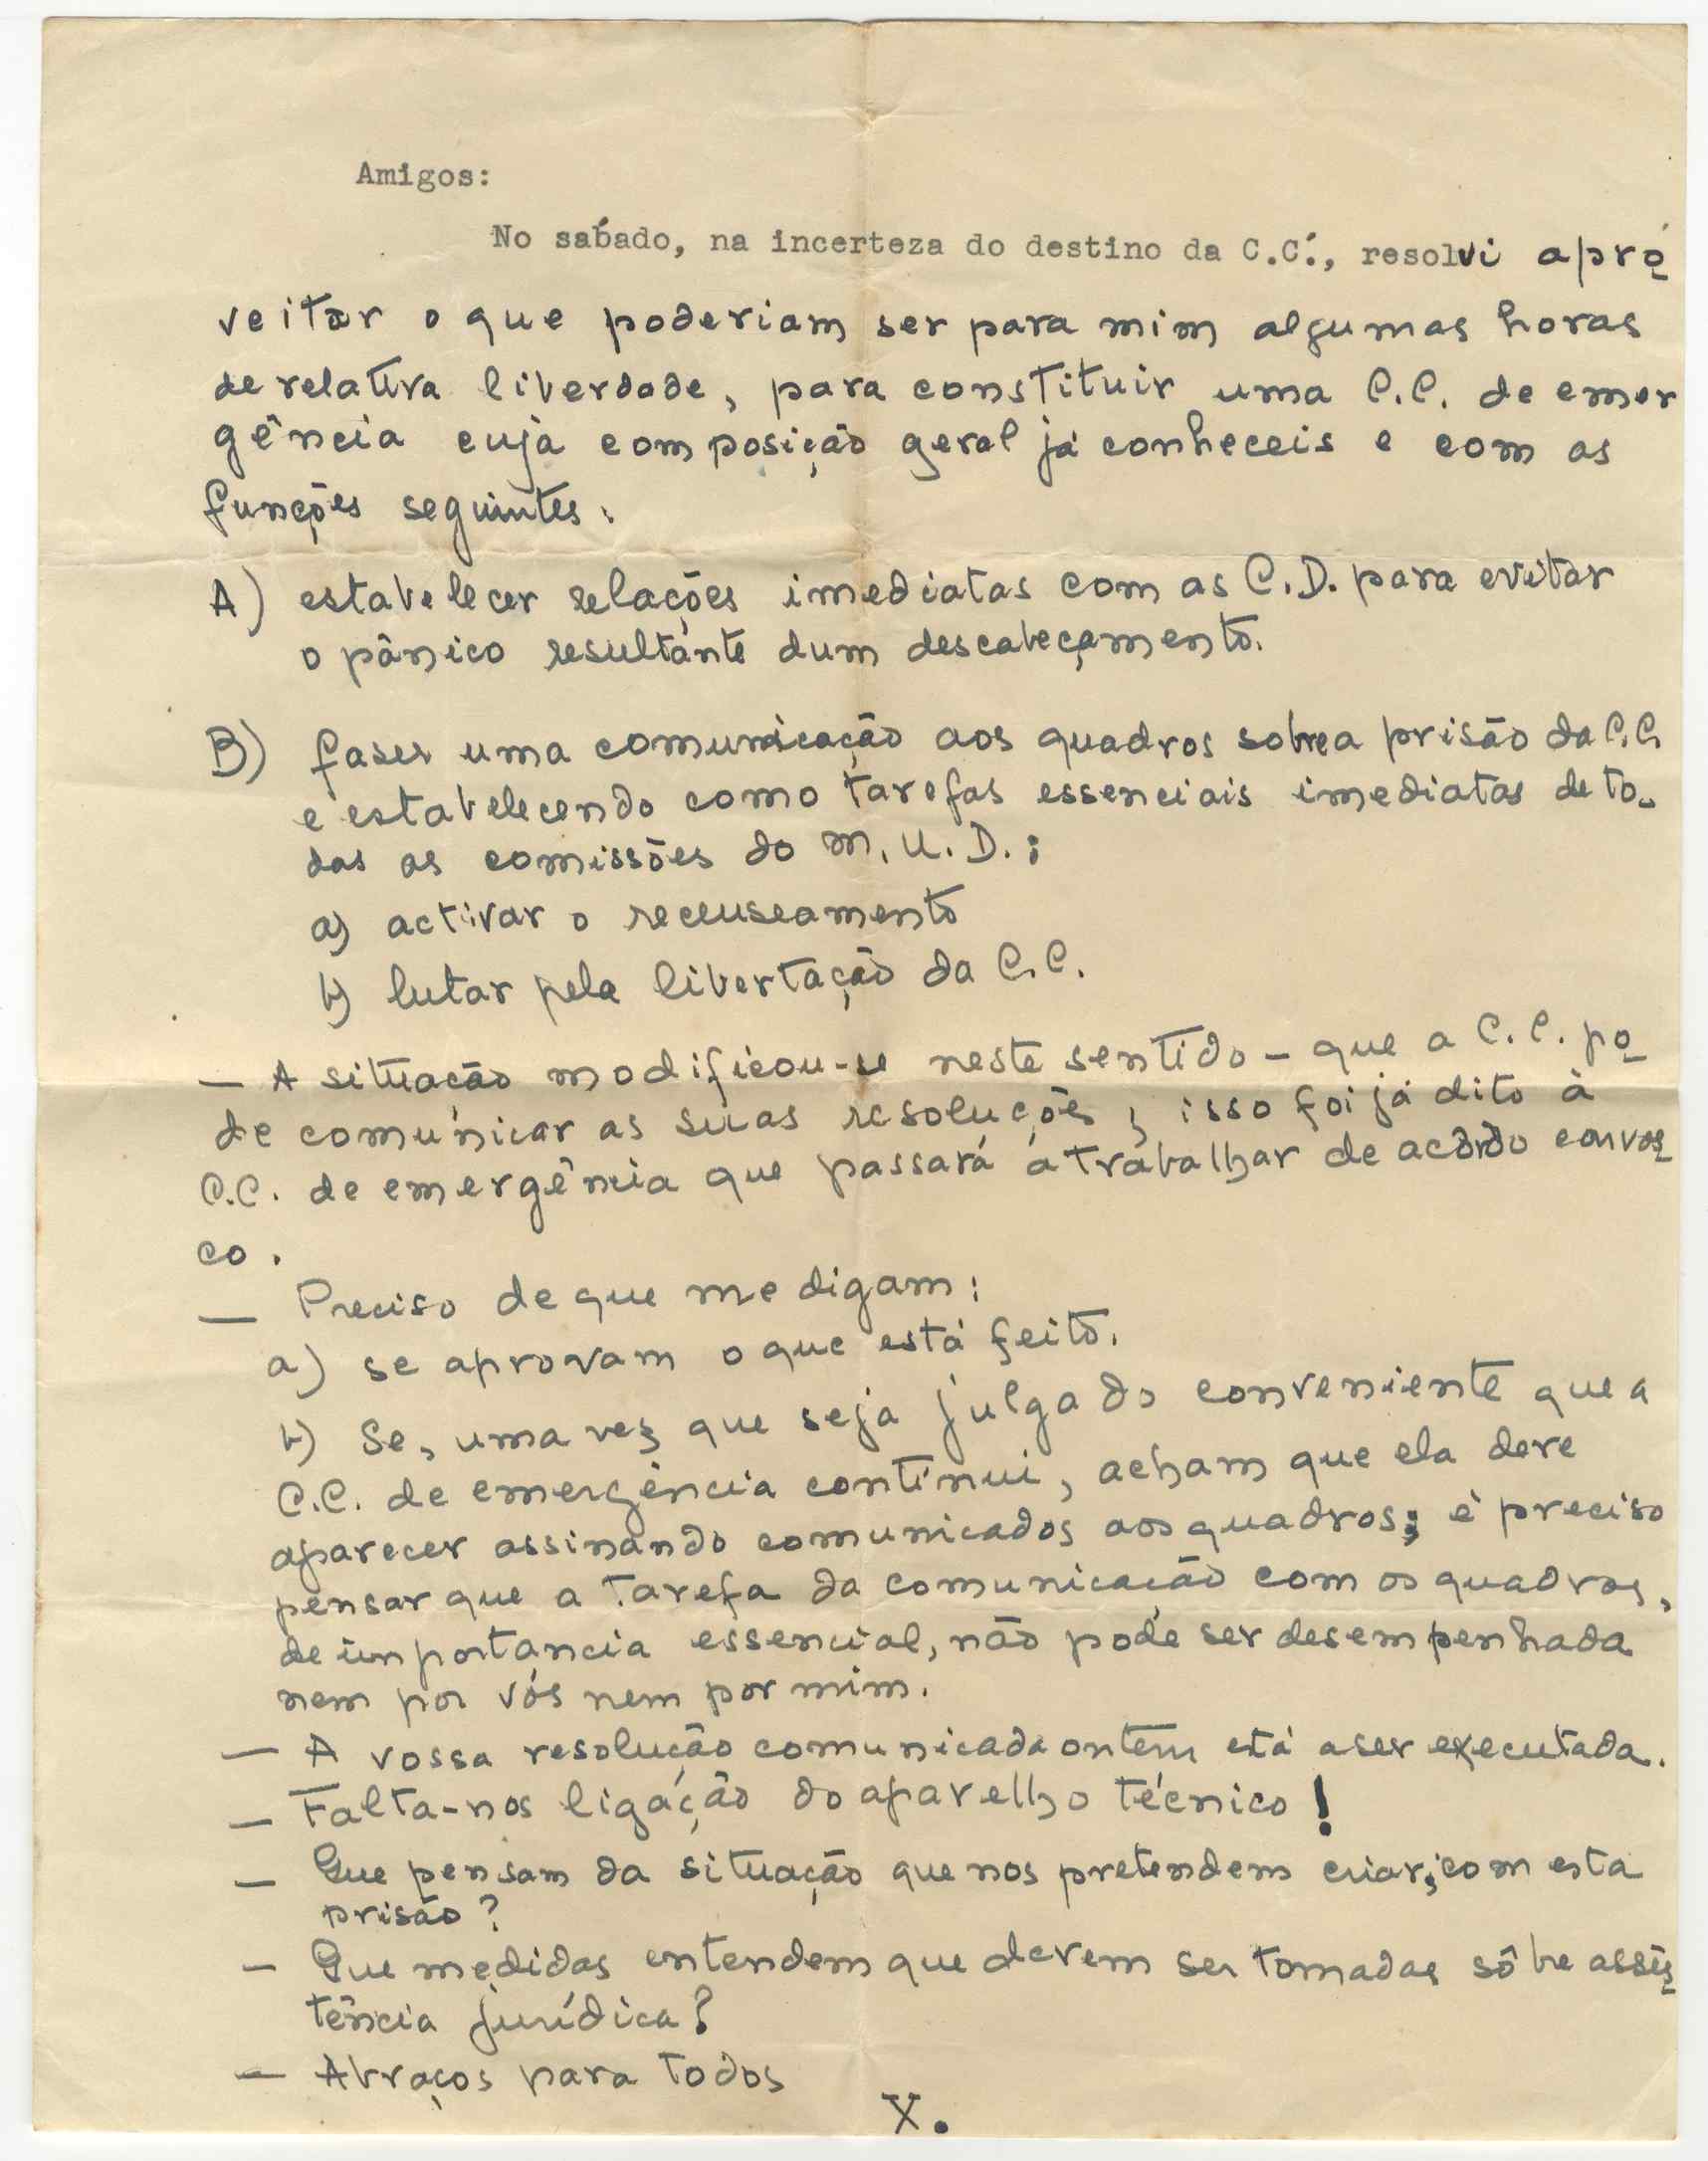 Amigos:
No sabado, na incerteza do destino da C.C., resolvi apro
veitar o que poderiam ser para mim algumas horas
de relativa liberdade, para constituir uma C.C. de emer
gência cuja composição geral já conheceis e com as
funções seguintes:
A) estabelecer relações imediatas com as C.D. para evitar
o pânico resultante dum descabeçamento.
B) faser uma comunicação aos quadros sobre a prisão da C.C.
e estabelecendo como tarefas essenciais imediatas de to-
das as comissões do M.U.D.:
a) activar o recenseamento
b) lutar pela libertação da C.C.
— A situação modificou-se neste sentido – que a C.C. po
de comunicar as suas resoluções; isso foi já dito à
C.C. de emergência que passará a trabalhar de acôrdo convos
co.
— Preciso de que me digam:
a) se aprovam o que está feito.
b) Se, uma vez que seja julgado conveniente que a
C.C. de emergência continui, acham que ela deve
aparecer assinando comunicados aos quadros; é preciso
pensar que a tarefa da comunicação com os quadros,
de importancia essencial, não pode ser desempenhada
nem por vós nem por mim.
— A vossa resolução comunicada ontem está a ser executada.
— Falta-nos ligação do aparelho técnico!
— Que pensam da situação que nos pretendem criar, com esta
prisão?
— Que medidas entendem que devem ser tomadas sôbre assis
tência jurídica?
— Abraços para todos
X.